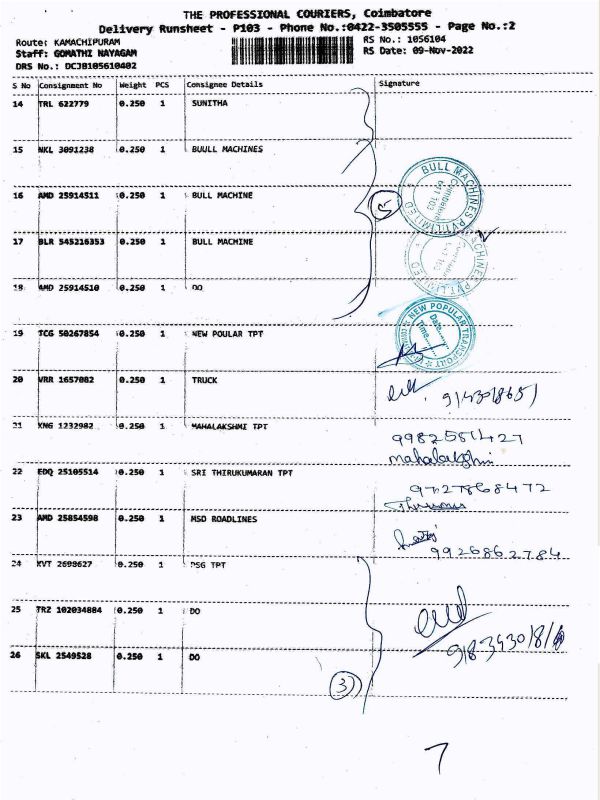 THE PROFESSIONAL COURIERS, Coimbatore
Delivery Runsheet - P103 - Phone No.:0422-3505555 - Page No.:2
Route: KAMACHIPURAM RS No.: 1056104
Staff: GOMATHI NAYAGAM RS Date: 09-Nov-2022
DRS No.: DCJB105610402
S No Consignment No Weight PCS Consignee Details Signature
14 TRL 622779 0.250 1 SUNITHA
15 NKL 3091238 0.250 1 BUULL MACHINES
16 AMD 25914511 0.250 1 BULL MACHINE 5 BULL MACHINES PVT LIMITED
17 BLR 545216353 0.250 1 BULL MACHINE
18 AMD 25914510 0.250 1 DO
19 TCG 50267854 0.250 1 NEW POULAR TPT NEW POPULAR TRANSPORT Date Time
20 VRR 1657082 0.250 1 TRUCK
21 KNG 1232982 0.250 1 MAHALAKSHMI TPT 9982581427
mahalakshmi
22 EDQ 25105514 0.250 1 SRI THIRUKUMARAN TPT 9727868472
23 AMD 25854598 0.250 1 MSD ROADLINES
9926862784
24 KVT 2698627 0.250 1 PSG TPT
25 TRZ 102034884 0.250 1 DO
26 SKL 2549528 0.250 1 DO
3
7